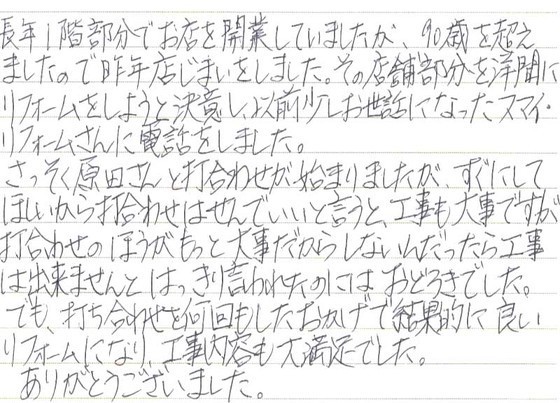 長年1階部分でお店を開業していましたが、90歳を超え
ましたので昨年店じまいをしました。その店舗部分を洋間に
リフォームをしようと決意し、以前少しお世話になったスマイ
リフォームさんに電話をしました。
さっそく原田さんと打合わせが始まりましたが、すぐにして
ほしいから打合わせはせんでいいと言うと、工事も大事ですが
打合わせのほうがもっと大事だからしないんだったら工事
は出来ませんとはっきり言われたのにはおどろきでした。
でも、打ち合わせを何回もしたおかげで結果的に良い
リフォームになり、工事内容も大満足でした。
ありがとうございました。